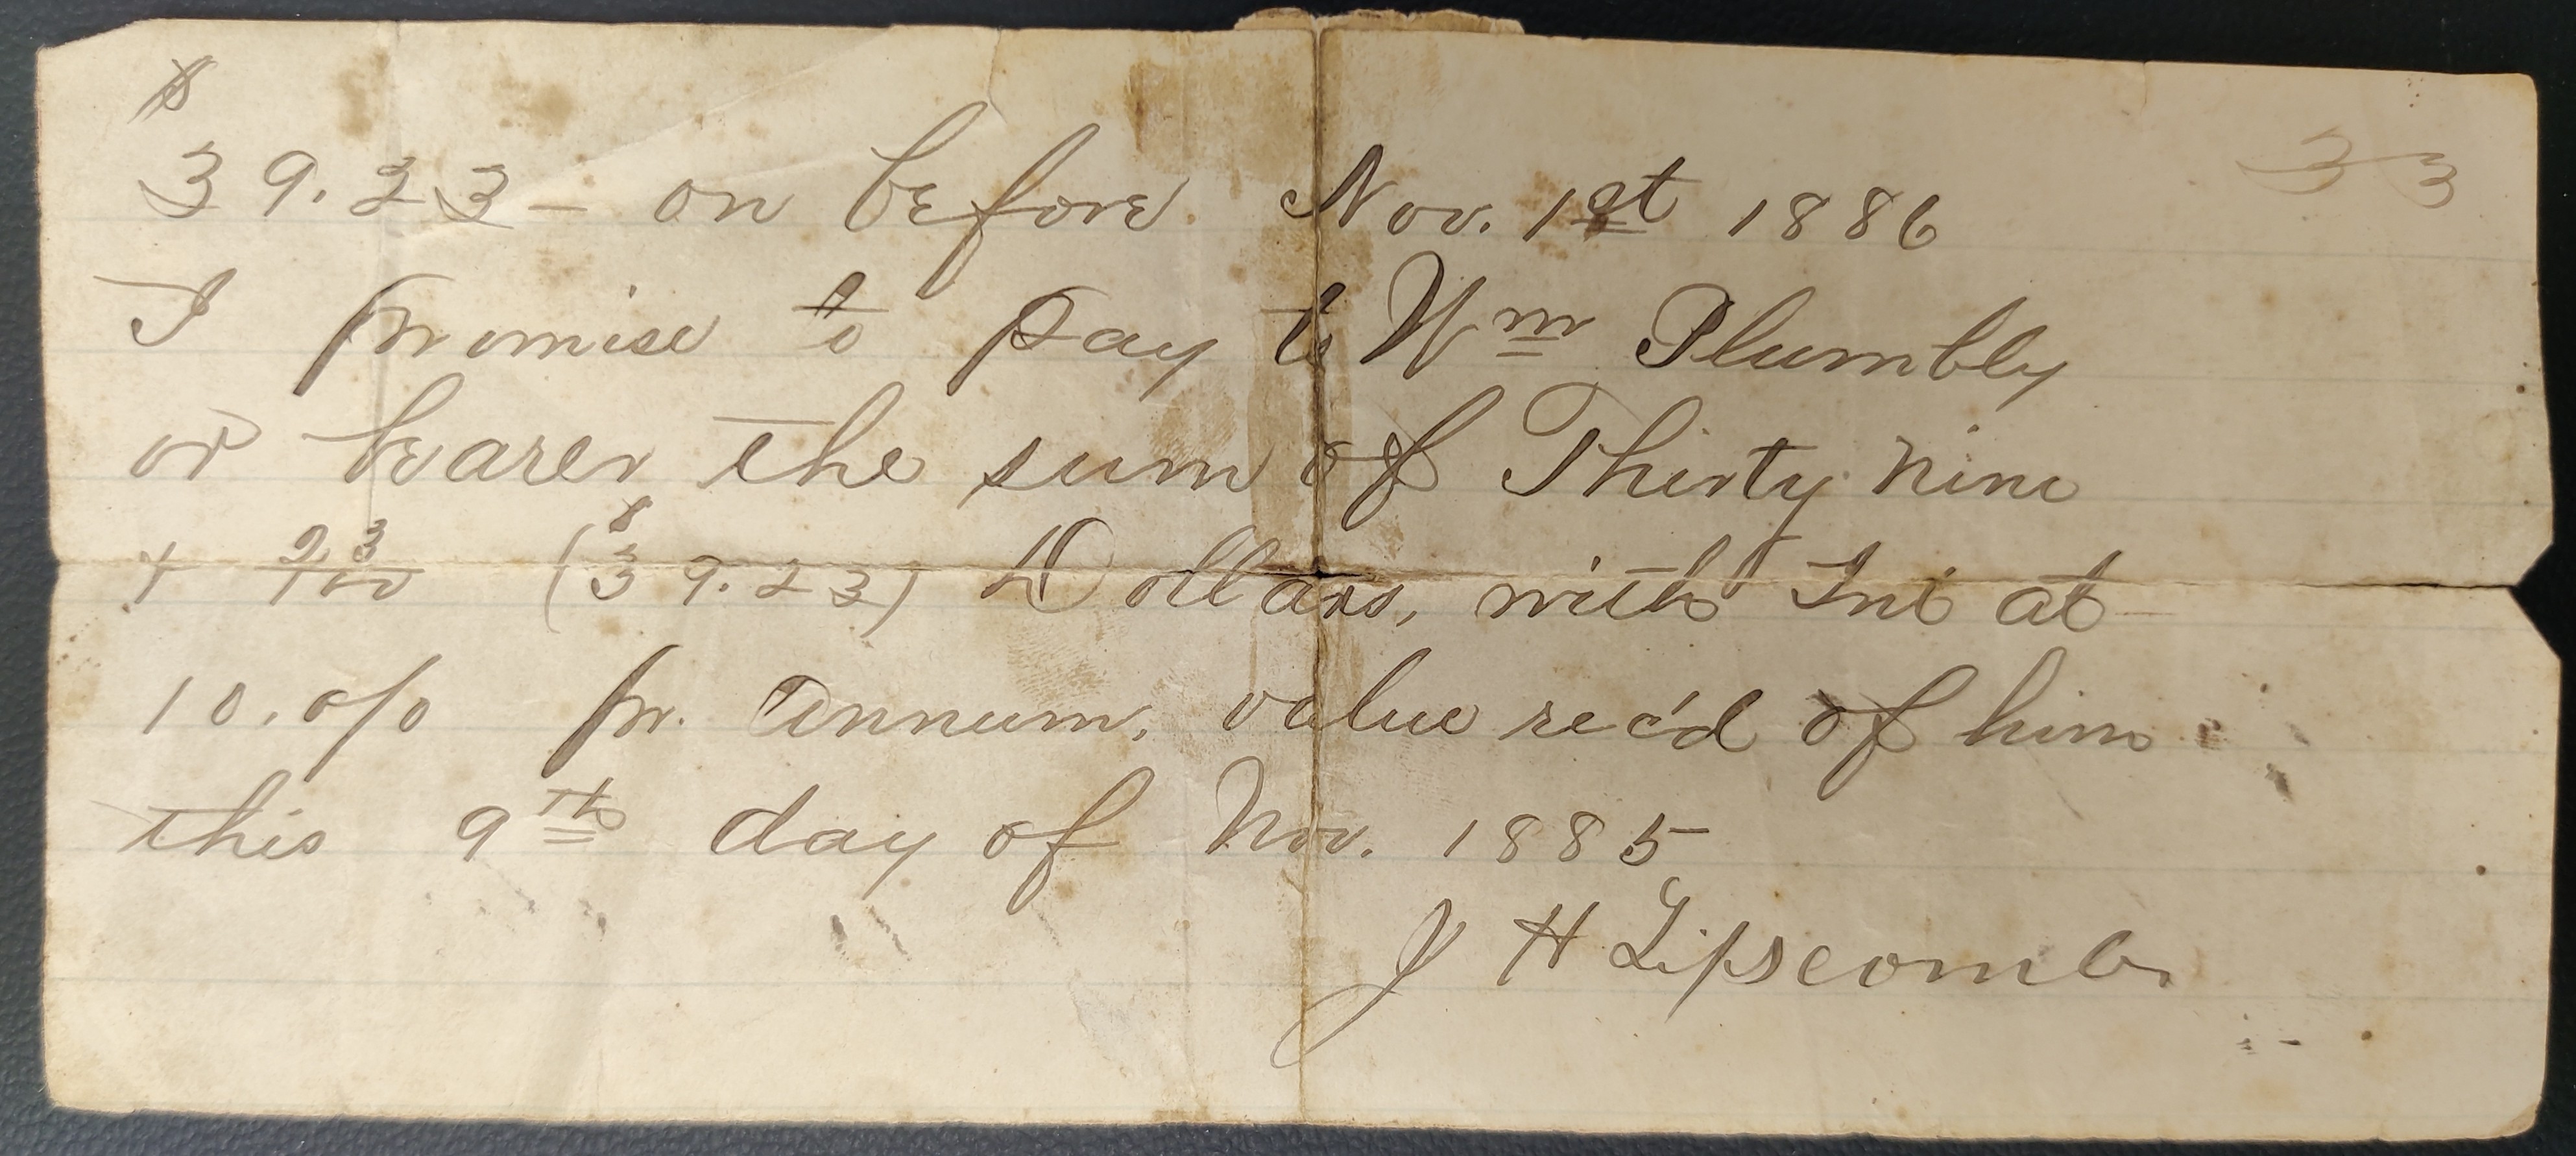 $
39.23 – on before Nov. 1st 1886
33
I promise to pay to Wm Plumbly
or bearer the sum of Thirty nine
+ 23/100 ($39.23) Dollars, with Int at
10. o/o pr. Annum, value rec'd of him
this 9th day of Nov. 1885
J H Lipscomb.